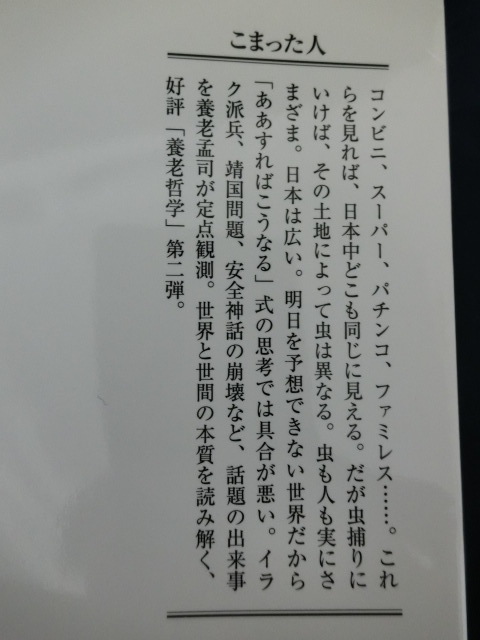 こまった人
コンビニ、スーパー、パチンコ、ファミレス……。これ
らを見れば、日本中どこも同じに見える。だが虫捕りに
いけば、その土地によって虫は異なる。虫も人も実にさ
まざま。日本は広い。明日を予想できない世界だから
「ああすればこうなる」式の思考では具合が悪い。イラ
ク派兵、靖国問題、安全神話の崩壊など、話題の出来事
を養老孟司が定点観測。世界と世間の本質を読み解く、
好評「養老哲学」第二弾。